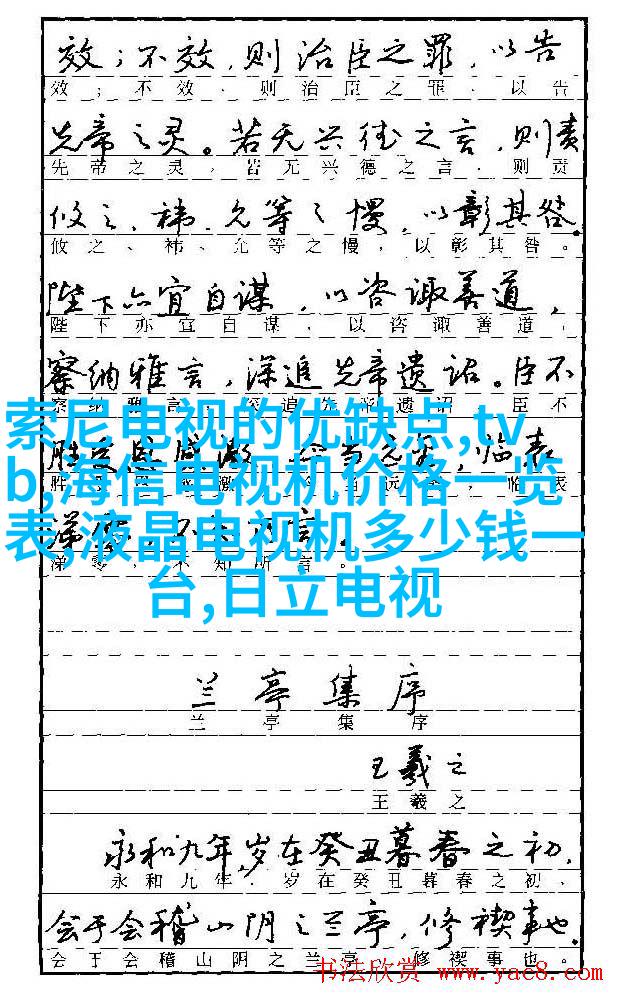 效；不效，则治臣之罪，以告
效；不效、则治臣之罪、以告
先帝之灵。若无兴德之言，则责
先帝之灵，若无兴德之言、则责
攸之、祎、允等之慢，以彰其咎。
攸之、祎、允等之慢，以彰其咎。
陛下亦宜自谋，以咨诹善道，
陛下亦宜自谋，以咨诹善道，
察纳雅言，深追先帝遗诏。臣不
遗诏 臣不
索尼电视的优缺点,tv
b,海信电视机价格一览
表,液晶电视机多少钱一
台,日立电视
临表
涕零，不知所言。
兰亭集序
兰亭集序
王羲之
王羲之
永和九年，岁在癸丑暮春之初，
永和九年．岁在癸丑暮春之初、
会于会稽山阴之兰亭，修禊事也。
会于会稽山阴之兰亭 修禊事也。
书法欣赏 www.yac8.com